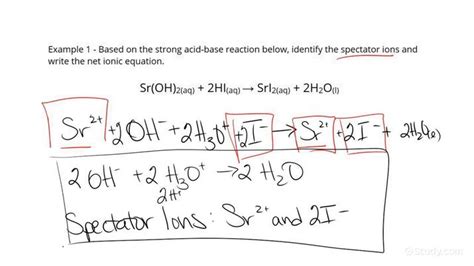 Example 1 - Based on the strong acid-base reaction below, identify the spectator ions and
write the net ionic equation.
Sr(OH)₂(aq) + 2HI(aq) → SrI₂(aq) + 2H₂O(l)
Sr²⁺ + 2OH⁻ + 2H₃O⁺ + 2I⁻ → Sr²⁺ + 2I⁻ + 2H₂O(l)
2OH⁻ + 2H₃O⁺ → 2H₂O
2H⁺
Spectator Ions: Sr²⁺ and 2I⁻
Study.com